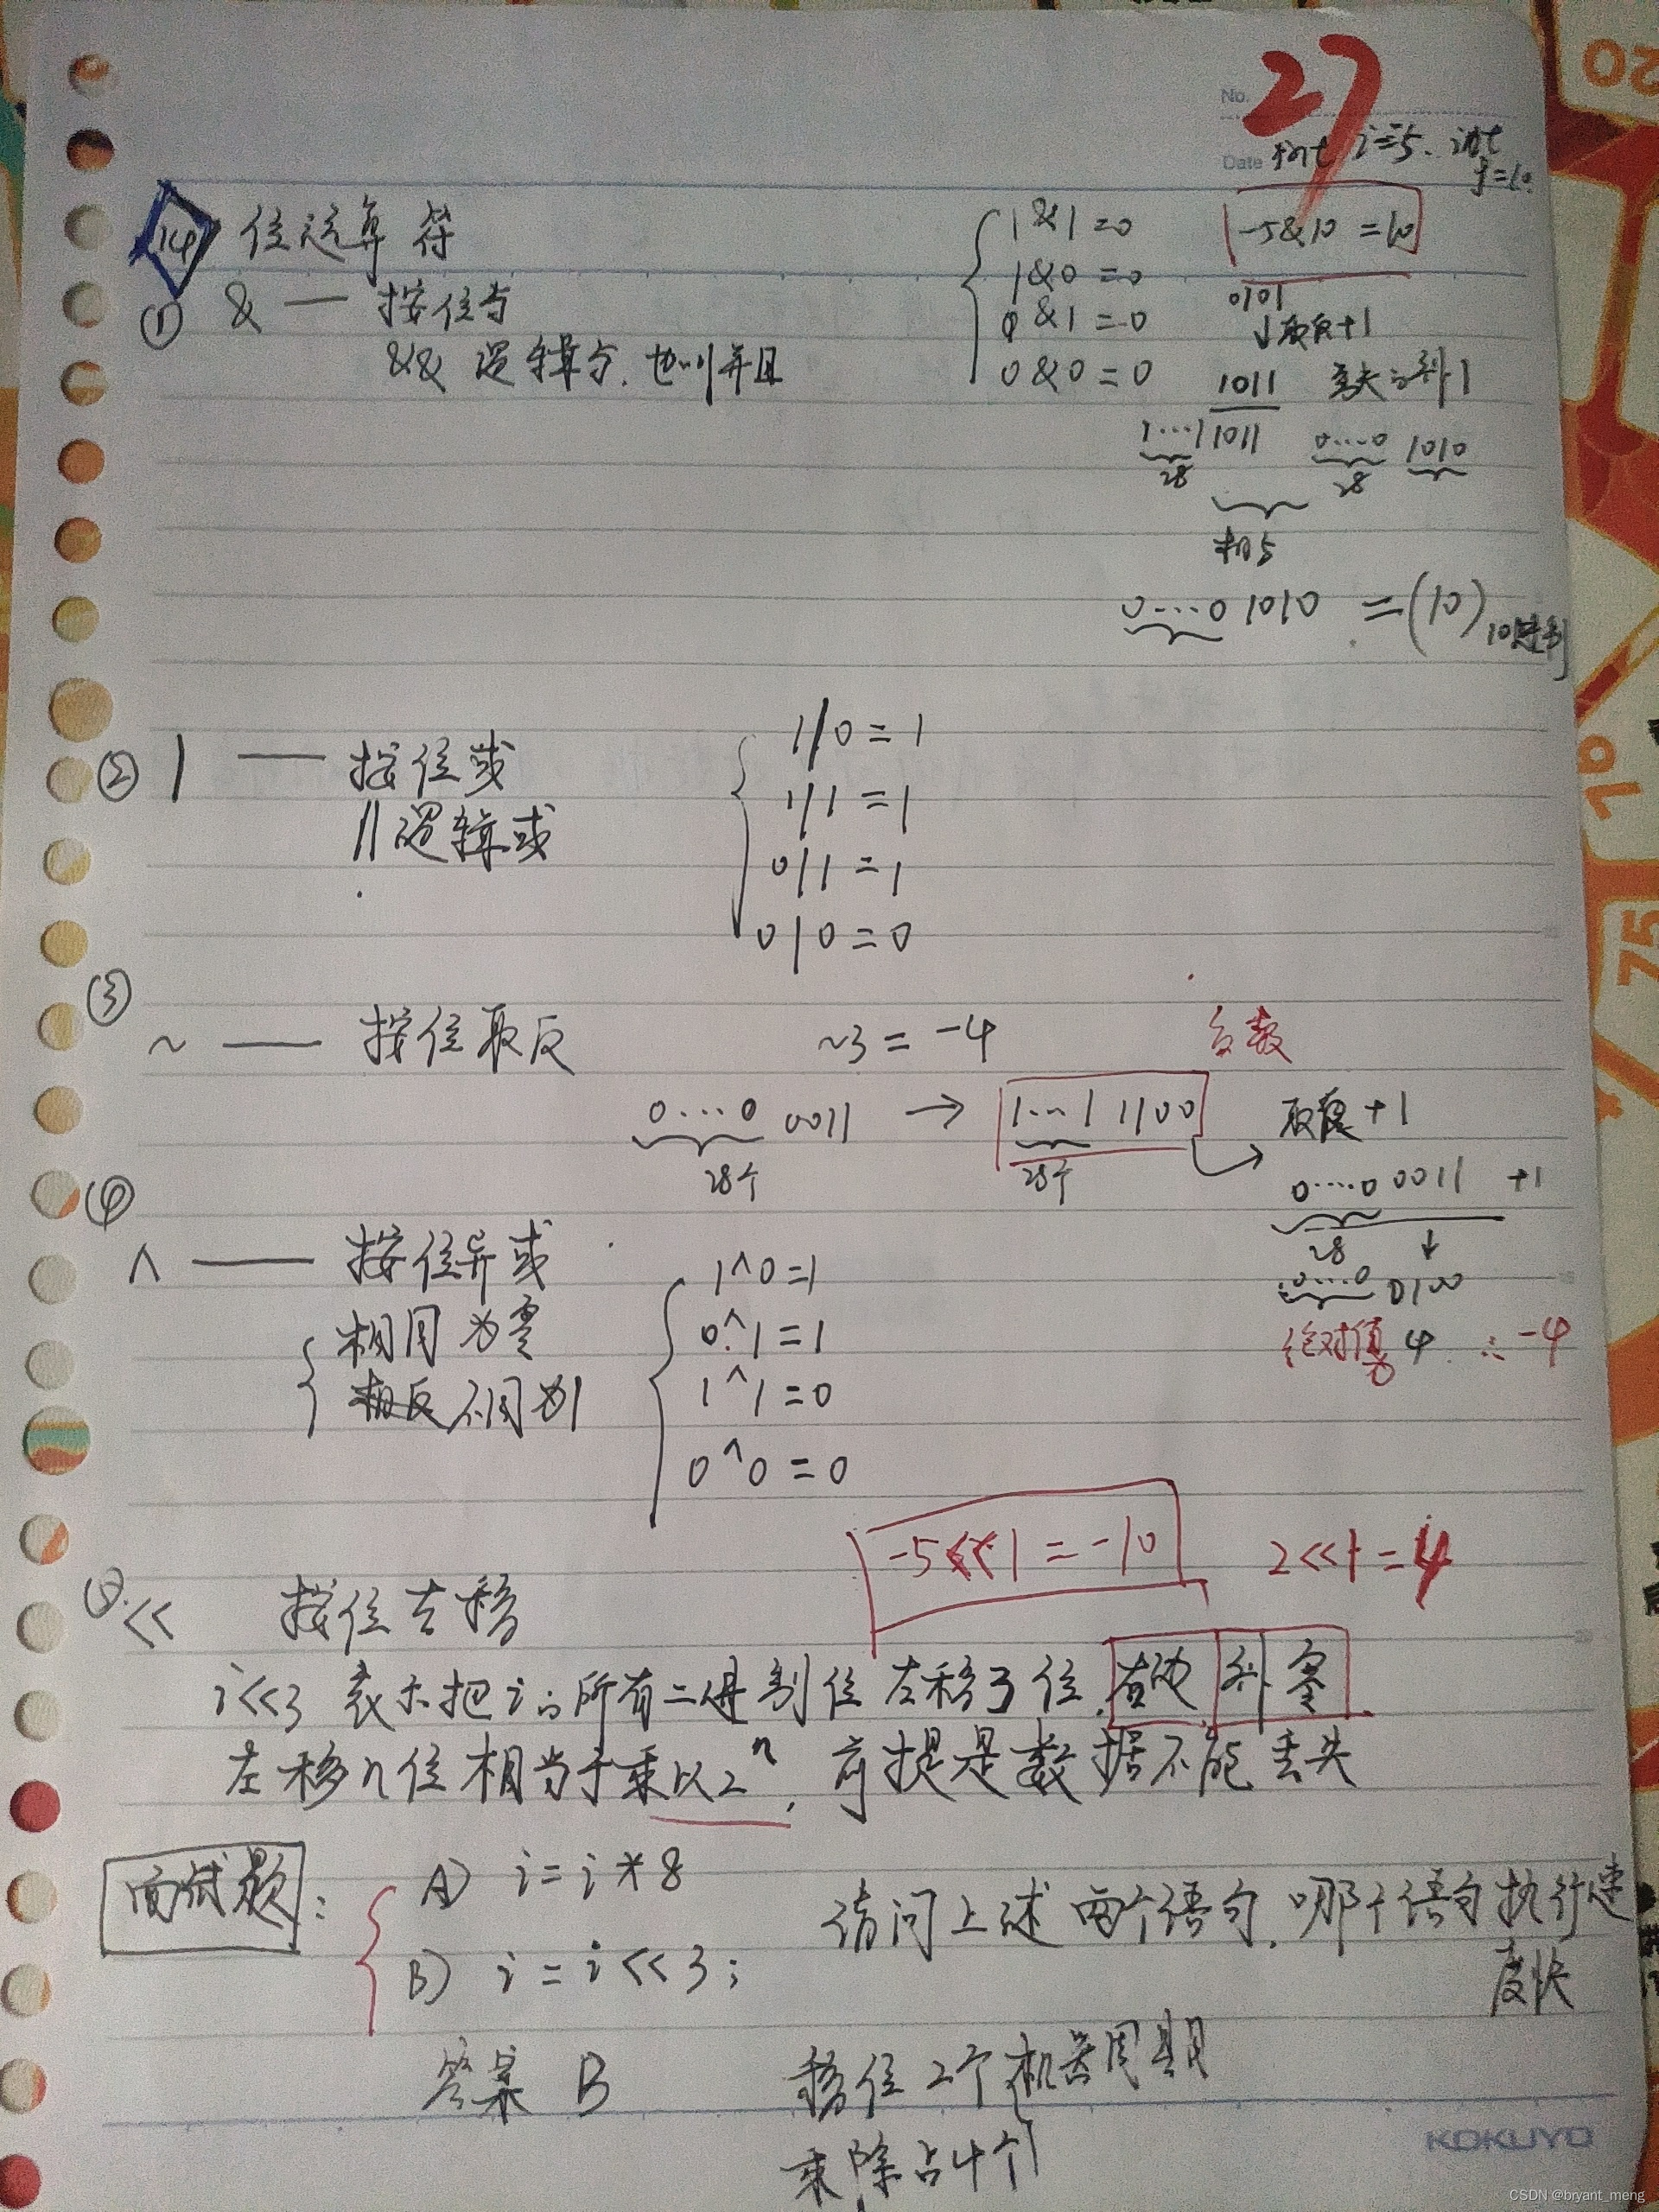 No.
27
Date int i=5. int
j=10
14 位运算符
1&1=0
1&0=0
0&1=0
0&0=0
-5&10=10
0101
↓取反+1
1011 丢失补1
1····11011 0····0 1010
28 28
相与
0····0 1010 =(10)10进制
① & — 按位与
&& 逻辑与, 也叫并且
② | — 按位或
|| 逻辑或
1|0=1
1|1=1
0|1=1
0|0=0
③ ~ — 按位取反 ~3=-4 负数
0····0 0011 → 1···1 1100 取反+1
28个 28个
0····0 0011 +1
28 ↓
0····0 0100
绝对值为4 ∴-4
④ ^ — 按位异或
相同为零
不同为1
1^0=1
0^1=1
1^1=0
0^0=0
-5<<1=-10 2<<1=4
⑤ << 按位左移
i<<3 表示把i的所有二进制位左移3位,右边补零
左移n位相当于乘以2ⁿ, 前提是数据不能丢失
面试题:
A) i=i*8
B) i=i<<3;
请问上述两个语句,哪个语句执行速
度快
答案 B 移位2个机器周期
乘除占4个
KOKUYO
CSDN @bryant_meng